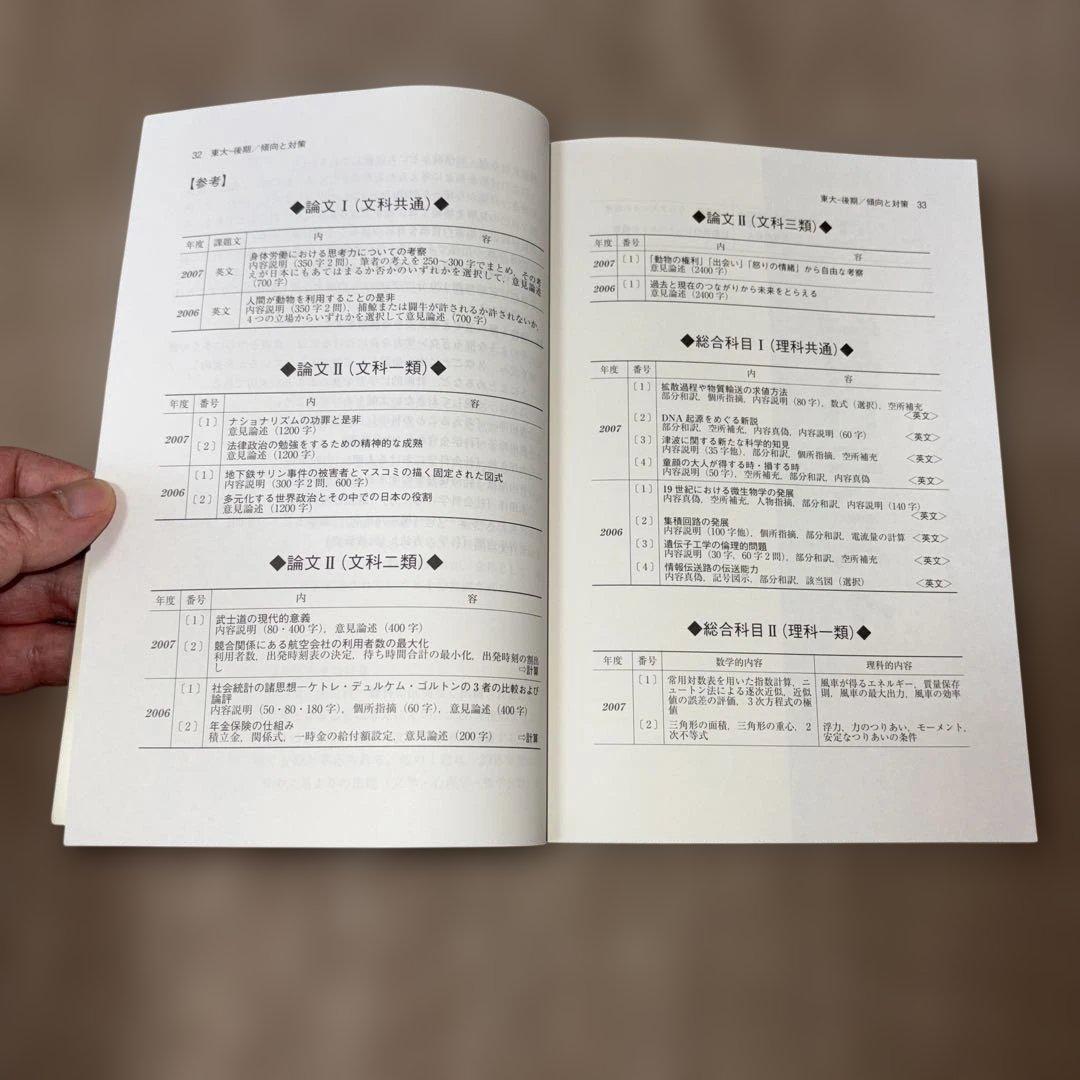 32 東大-後期/傾向と対策
【参考】
◆論文Ⅰ(文科共通)◆
年度 課題文 内 容
2007 英文 身体労働における思考力についての考察
内容説明(350字2問),筆者の考えを250〜300字でまとめ,その考
えが日本にもあてはまるか否かのいずれかを選択して,意見論述
(700字)
2006 英文 人間が動物を利用することの是非
内容説明(350字2問),捕鯨または闘牛が許されるか許されないか,
4つの立場からいずれかを選択して意見論述(700字)
◆論文Ⅱ(文科一類)◆
年度 番号 内 容
2007 〔1〕 ナショナリズムの功罪と是非
意見論述(1200字)
〔2〕 法律政治の勉強をするための精神的な成熟
意見論述(1200字)
2006 〔1〕 地下鉄サリン事件の被害者とマスコミの描く固定された図式
内容説明(300字2問,600字)
〔2〕 多元化する世界政治とその中での日本の役割
意見論述(1200字)
◆論文Ⅱ(文科二類)◆
年度 番号 内 容
2007 〔1〕 武士道の現代的意義
内容説明(80・400字),意見論述(400字)
〔2〕 競合関係にある航空会社の利用者数の最大化
利用者数,出発時刻表の決定,待ち時間合計の最小化,出発時刻の割出
し ⇨計算
2006 〔1〕 社会統計の諸思想―ケトレ・デュルケム・ゴルトンの3者の比較および
論評
内容説明(50・80・180字),個所指摘(60字),意見論述(400字)
〔2〕 年金保険の仕組み
積立金,関係式,一時金の給付額設定,意見論述(200字) ⇨計算
東大-後期/傾向と対策 33
◆論文Ⅱ(文科三類)◆
年度 番号 内 容
2007 〔1〕 「動物の権利」「出会い」「怒りの情緒」から自由な考察
意見論述(2400字)
2006 〔1〕 過去と現在のつながりから未来をとらえる
意見論述(2400字)
◆総合科目Ⅰ(理科共通)◆
年度 番号 内 容
2007 〔1〕 拡散過程や物質輸送の求値方法
部分和訳,個所指摘,内容説明(80字),数式(選択),空所補充
<英文>
〔2〕 DNA起源をめぐる新説
部分和訳,空所補充,内容真偽,内容説明(60字) <英文>
〔3〕 津波に関する新たな科学的知見
内容説明(35字他),部分和訳,個所指摘,空所補充 <英文>
〔4〕 童顔の大人が得する時・損する時
内容説明(50字),空所補充,部分和訳,内容真偽 <英文>
2006 〔1〕 19世紀における微生物学の発展
内容真偽,空所補充,人物指摘,部分和訳,内容説明(140字)
<英文>
〔2〕 集積回路の発展
内容説明(100字他),個所指摘,部分和訳,電流量の計算 <英文>
〔3〕 遺伝子工学の倫理的問題
内容説明(30字,60字2問),部分和訳,空所補充 <英文>
〔4〕 情報伝送路の伝送能力
内容真偽,記号図示,部分和訳,該当図(選択) <英文>
◆総合科目Ⅱ(理科一類)◆
年度 番号 数学的内容 理科的内容
2007 〔1〕 常用対数表を用いた指数計算,ニ
ュートン法による逐次近似,近似
値の誤差の評価,3次方程式の極
値
風車が得るエネルギー,質量保存
則,風車の最大出力,風車の効率
〔2〕 三角形の面積,三角形の重心,2
次不等式
浮力,力のつりあい,モーメント,
安定なつりあいの条件